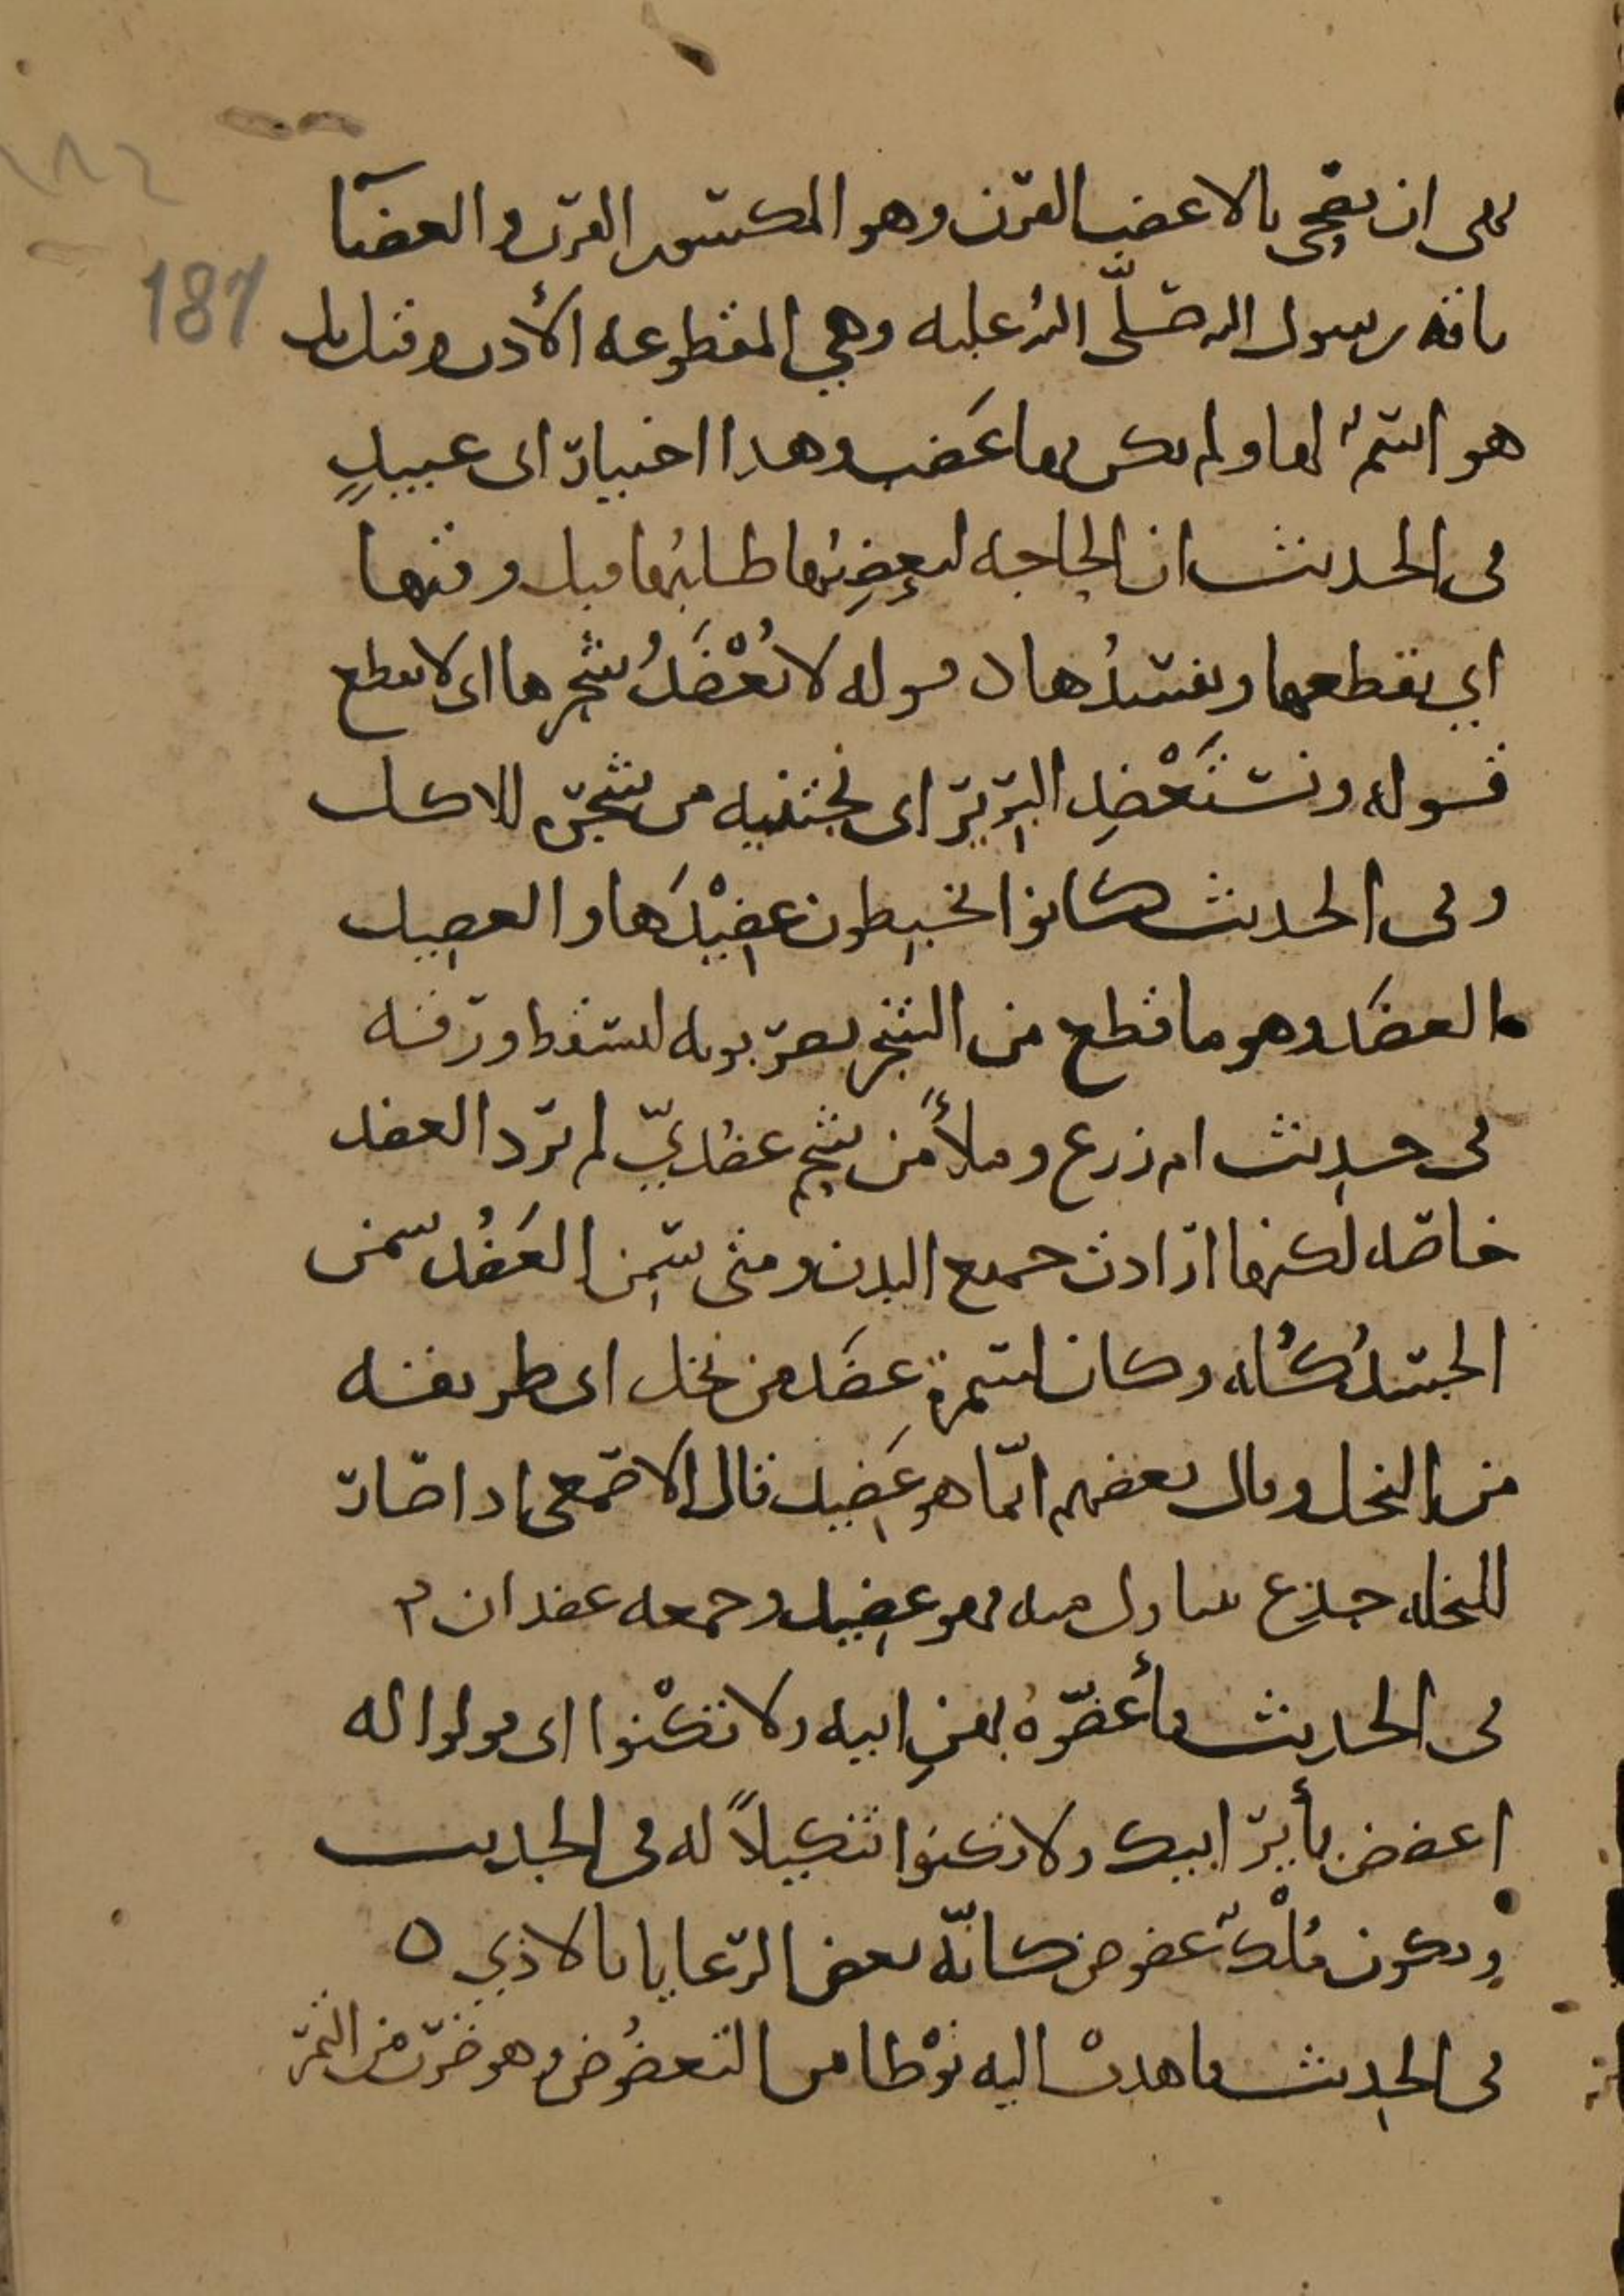 نهى ان يضحى بالاعضب القرن وهو المكسور القرن والعضبا
ناقة رسول الله صلّى الله عليه وهي المقطوعة الأذن وقيل بل
هو اسمٌ لها ولم يكن بها عَضب وهذا اختيار ابي عبيدٍ
في الحديث ان الحاجة ليعضِبُها طلبُها قبل وقتها
اي يقطعها ويفسدُها ٥ قوله لا يُعْضَدُ شجرها اي لا يقطع
قوله ونَسْتَعْضِد البرير اي نجتنيه من شجره للاكل
وفي الحديث كانوا يخبطون عضِيْدَها والعضيد
والعضَد وهو ما قطع من الشجر يضربونه ليسقط ورقه
في حديث ام زرع وملأ من شحم عضديّ لم ترد العضد
خاصّه لكنها ارادت جميع البدن ومتى سمن العَضُد سمن
الجسدُ كُلّه وكان لسمرة عضَد من نخل اي طريقة
من النخل وقال بعضهم انّما هو عَضِيد قال الاصمعي اذا صار
للنخلة جذع يتناول منه فهو عضِيد وجمعه عضدان
في الحديث فأعضّوهُ بهنِ ابيه ولا تكْنوا اي قولوا له
اعضض بأير ابيك ولا تكنوا تنكيلاً له في الحديث
ويكون مُلْكٌ عضوض كانّه يعض الرّعايا بالاذي ٥
في الحديث فاهدت اليه نوْطا من التعضُوض وهو ضرب من التمر
187